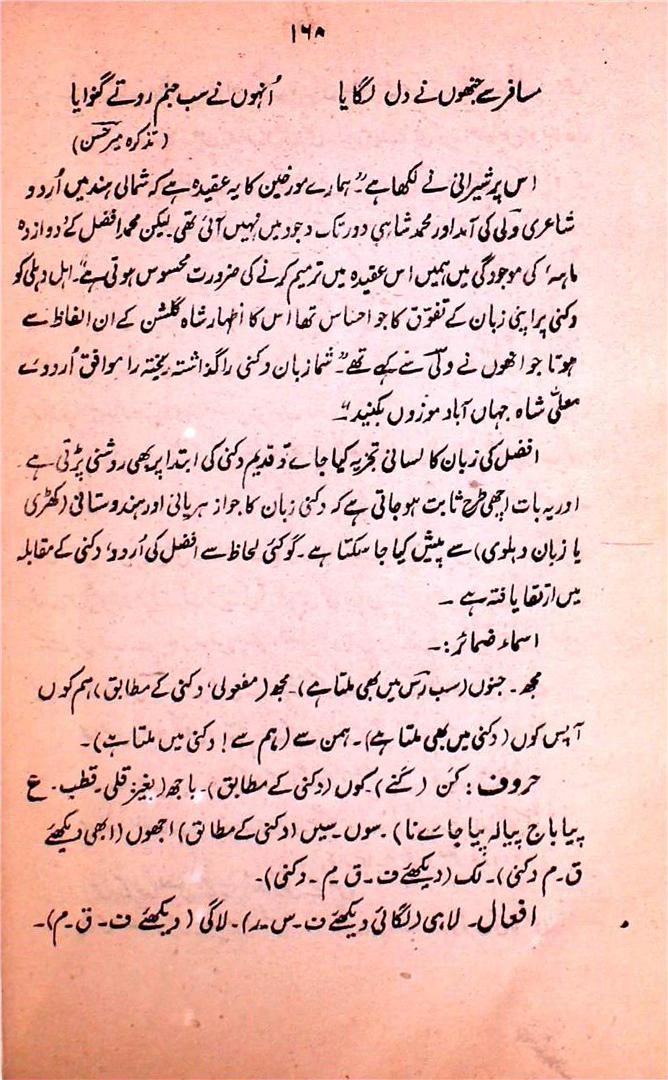 ۱۶۸
مسافر سے جنھوں نے دل لگایا اُنہوں نے سب جنم روتے گنوایا
(تذکرہ میر حسن)
اس پر شیرانی نے لکھا ہے "ہمارے مورخین کا یہ عقیدہ ہے کہ شمالی ہند میں اُردو
شاعری ولی کی آمد اور محمد شاہی دور تک وجود میں نہیں آئی تھی لیکن محمد افضل کے 'دوازدہ
ماہہ' کی موجودگی میں ہمیں اس عقیدہ میں ترمیم کرنے کی ضرورت محسوس ہوتی ہے"۔ اہل دہلی کو
دکنی پر اپنی زبان کے تفوّق کا جو احساس تھا اس کا اظہار شاہ گلشن کے ان الفاظ سے
ہوتا جو انھوں نے ولیؔ سے کہے تھے۔ "شما زبان دکنی را گذاشتہ ریختہ را موافق اُردوے
معلّی شاہ جہاں آباد موزوں بکنید"۔
افضل کی زبان کا لسانی تجزیہ کیا جاے تو قدیم دکنی کی ابتدا پر بھی روشنی پڑتی ہے۔
اور یہ بات اچھی طرح ثابت ہو جاتی ہے کہ دکنی زبان کا جواز ہریانی اور ہندوستانی (کھڑی
یا زبان دہلوی) سے پیش کیا جا سکتا ہے۔ گو کئی لحاظ سے افضل کی اُردو، دکنی کے مقابلہ
میں ارتقا یافتہ ہے ۔
اسماء ضمائر:۔
مجھ۔ جنوں (سب رس میں بھی ملتا ہے)۔ مجھ (مفعولی، دکنی کے مطابق) ہم کوں
آپس کوں (دکنی میں بھی ملتا ہے)۔ ہمن سے (ہم سے! دکنی میں ملتا ہے)۔
حروف: کَن (کَنے)۔ کوں (دکنی کے مطابق)۔ باجھ (بغیر قلی۔ قطب۔ ع
پیا باج پیالہ پیا جاے نا)۔ سوں۔ سیں (دکنی کے مطابق) اجھوں (ابھی دیکھئے
ق۔م دکنی)۔ لک (دیکھئے ف۔ق۔م۔ دکنی)۔
افعال۔ لاہی (لگائی دیکھئے ف۔س۔ر)۔ لاگی (دیکھئے ف۔ق۔م)۔